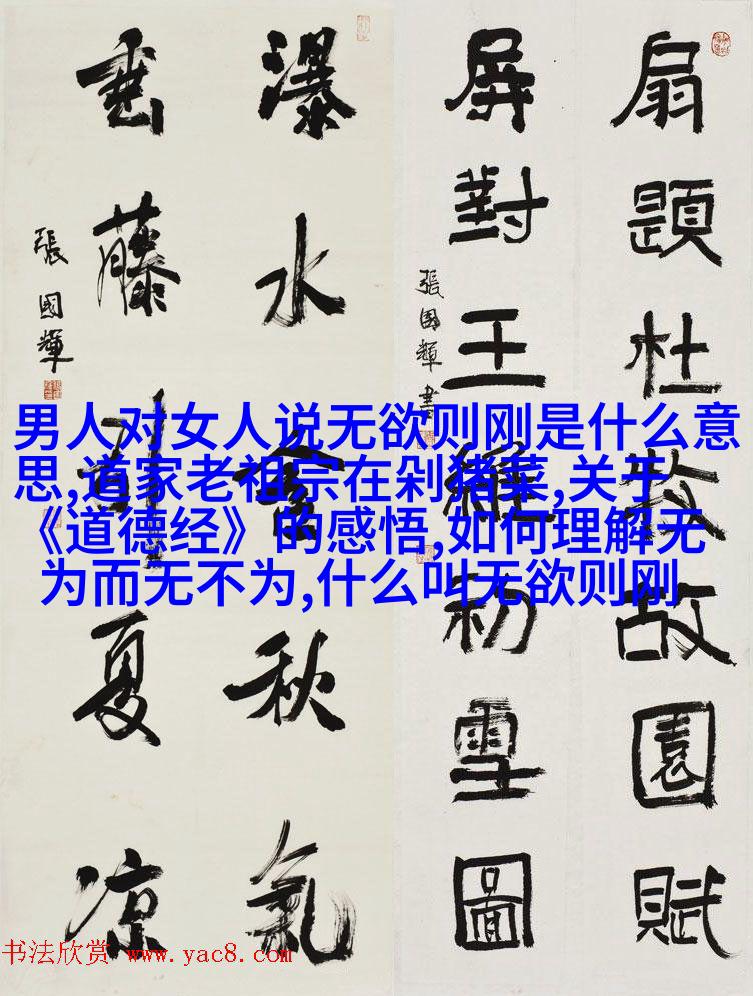 扇題杜牧故園賦
屏對王維初雪圖
張國輝書
瀑水含秋氣
垂藤引夏凉
張國輝
男人对女人说无欲则刚是什么意
思,道家老祖宗在剁猪菜,关于
《道德经》的感悟,如何理解无
为而无不为,什么叫无欲则刚
书法欣赏 www.yac8.com